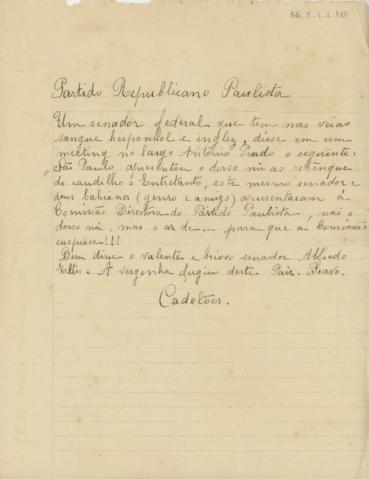 Partido Republicano Paulista
Um senador federal que tem nas veias
sangue hespanhol e inglez, disse em um
meeting no largo Antonio Prado o seguinte:
São Paulo apresentou o dorso nú ao rebenque
do caudilho. Entretanto, este mesmo senador e
dous bahiana (genro e amigo) apresentaram á
Commissão Directora do Partido Paulista, não o
dorso nú, mas o ar de.... para que a Commissão
cuspisse!!!
Bem disse o valente e brioso senador Alfredo
Ellis: A vergonha fugiu deste Paiz. Bravo.
Cadetões.